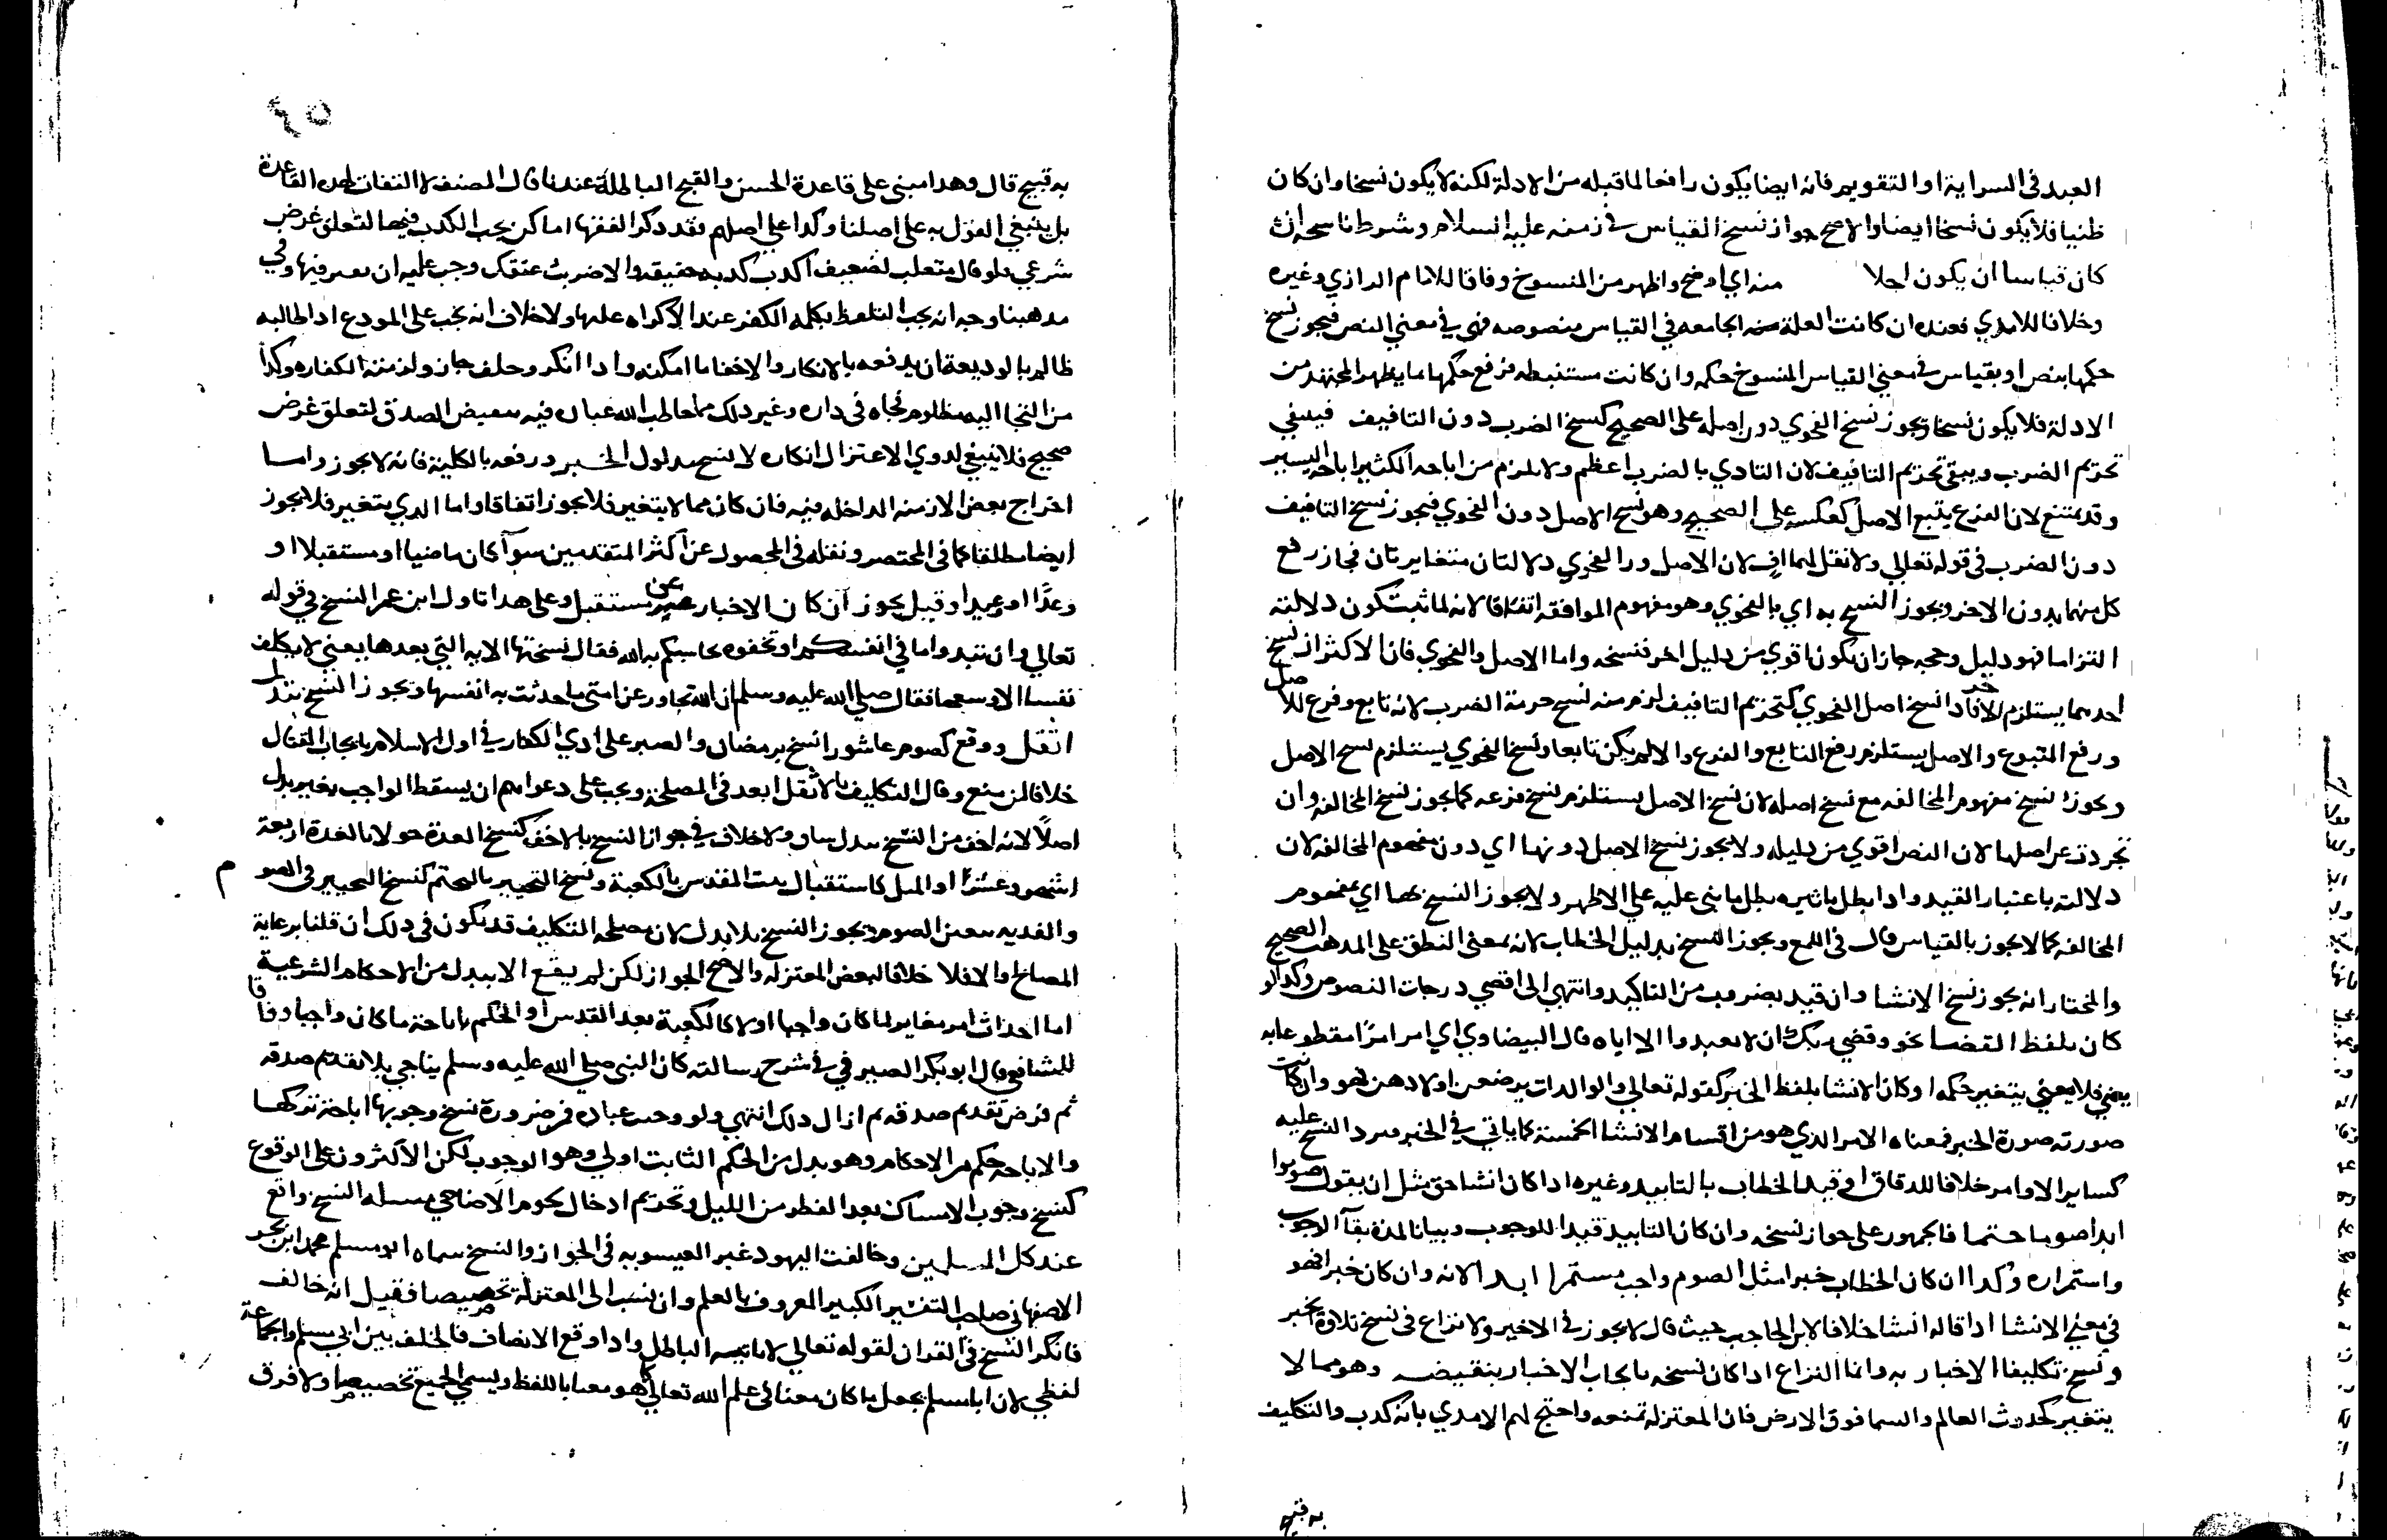 العبد في السراية او التقويم فانه ايضا يكون رافعا لما قبله من الادلة لكنه لا يكون نسخا وان كان
ظنيا فلا يكون نسخا ايضا والاصح جواز نسخ القياس في زمنه عليه السلام وشرط ناسخه ان
كان قياسا ان يكون اجلا منه اي اوضح واظهر من المنسوخ وفاقا للامام الرازي وغيره
وخلافا للامدي فعنده ان كانت العلة الجامعه في القياس منصوصه فهي في معني النص فيجوز نسخ
حكمها بنص او بقياس في معني القياس المنسوخ حكمه وان كانت مستنبطه فرفع حكمها بما يظهر للمجتهد من
الادلة فلا يكون نسخا ويجوز نسخ الفحوي دون اصله على الصحيح كنسخ الضرب دون التافيف فينتفي
تحريم الضرب ويبقى تحريم التافيف لان التادي بالضرب اعظم ولا يلزم من اباحه الكثير اباحه اليسير
وقد يمتنع لان الفرع يتبع الاصل كعكسه على الصحيح وهو نسخ الاصل دون الفحوي فيجوز نسخ التافيف
دون الضرب في قوله تعالي ولا تقل لهما اف لان الاصل والفحوي دلالتان متغايرتان فجاز رفع
كل منهما بدون الاخر ويجوز النسخ به اي بالفحوي وهو مفهوم الموافقه اتفاقا لانه لما ثبت كون دلالته
التزاما فهو دليل وحجه جاز ان يكون اقوي من دليل اخر فنسخه واما الاصل والفحوي فان الاكثر ان نسخ
احدهما يستلزم الاخر فاذا نسخ اصل الفحوي كتحريم التافيف لزم منه نسخ حرمة الضرب لانه تابع وفرع للاصل
ورفع المتبوع والاصل يستلزم رفع التابع والفرع والا لم يكن تابعا ونسخ الفحوي يستلزم نسخ الاصل
ويجوز نسخ مفهوم المخالفه مع نسخ اصله لان نسخ الاصل يستلزم نسخ فرعه كما يجوز نسخ المخالفه وان
تجردت عن اصلها لان النص اقوي من دليله ولا يجوز نسخ الاصل دونها اي دون مفهوم المخالفه لان
دلالته باعتبار القيد واذا بطل تاثيره بطل ما بنى عليه على الاظهر ولا يجوز النسخ بها اي بمفهوم
المخالفه كما لا يجوز بالقياس قال في اللمع ويجوز النسخ بدليل الخطاب لانه بمعني النطق على المذهب الصحيح
والمختار انه يجوز نسخ الانشا وان قيد بضروب من التاكيد وانتهي الى اقصي درجات النصوص وكذا لو
كان بلفظ القضا نحو وقضي ربك ان لا تعبدوا الا اياه قال البيضاوي اي امر امرا مقطوعا به
يعني فلا يتغير حكمه او كان الانشا بلفظ الخبر كقوله تعالي والوالدات يرضعن اولادهن فهو وان كانت
صورته صورة الخبر فمعناه الامر الذي هو من اقسام الانشا الخمسة كما ياتي في الخبر فيرد النسخ عليه
كساير الاوامر خلافا للدقاق او قيد الخطاب بالتابيد وغيره اذا كان انشا حق مثل ان يقول صوموا
ابدا صوما حتما فالجمهور على جواز نسخه وان كان التابيد قيدا للوجوب وبيانا لمدة بقآ الوجوب
واستمراره وكذا ان كان الخطاب خبرا مثل الصوم واجب مستمر ابدا لانه وان كان خبرا فهو
في معني الانشا اذا قاله انشا خلافا لابن الحاجب حيث قال لا يجوز في الاخير ولا نزاع في نسخ تلاوة الخبر
ونسخ تكليفنا الاخبار به وانما النزاع اذا كان نسخه بايجاب الاخبار بنقيضه وهو مما لا
يتغير كحدوث العالم والسما فوق الارض فان المعتزلة تمنعه واحتج لهم الامدي بانه كذب والتكليف
به قبيح
به قبيح قال وهذا مبني على قاعدة الحسن والقبح الباطلة عندنا قال المصنف لا التفات لهذه القاعدة
بل ينبغي القول به على اصلنا وكذا على اصلهم فقد ذكر الفقها اماكن يجب الكذب فيها لتعلق غرض
شرعي
مذهبنا وجه انه يجب التلفظ بكلمه الكفر عند الاكراه عليها ولا خلاف انه يجب على المودع اذا طالبه
ظالم بالوديعة ان يدفعه بالانكار والاخفا ما امكنه واذا انكر وحلف جاز ولزمته الكفاره وكذا
من التجا اليه مظلوم فخباه في داره وغير ذلك مما يخاطب الله عباده فيه بنقيض الصدق لتعلق غرض
صحيح فلا ينبغي لذوي الاعتزال انكاره لا نسخ مدلول الخبر ورفعه بالكلية فانه لا يجوز واما
اخراج بعض الازمنه الداخله فيه فان كان مما لا يتغير فلا يجوز اتفاقا واما الذي يتغير فلا يجوز
ايضا مطلقا كما في المختصر ونقله في المحصول عن اكثر المتقدمين سوآ كان ماضيا او مستقبلا او
وعدا او وعيدا وقيل يجوز ان كان الاخبار عن مستقبل وعلى هذا تاول ابن عمر النسخ في قوله
تعالي وان تبدوا ما في انفسكم او تخفوه يحاسبكم به الله فقال نسختها الايه التي بعدها يعني لا يكلف
نفسا الا وسعها فقال صلي الله عليه وسلم ان الله تجاوز عن امتي ما حدثت به انفسها ويجوز النسخ ببدل
اثقل ووقع كصوم عاشورا نسخ برمضان والصبر على اذي الكفار في اول الاسلام بايجاب القتال
خلافا لمن منع وقال التكليف بالاثقل ابعد في المصلحة ويجب على دعواهم ان يسقط الواجب بغير بدل
اصلا لانه اخف من النسخ ببدل مساو ولا خلاف في جواز النسخ بالاخف كنسخ العدة حولا بالعدة اربعة
اشهر وعشرا او المثل كاستقبال بيت المقدس بالكعبة ونسخ التخيير بالتحتم كنسخ التخيير في الصوم
والفديه بتعين الصوم ويجوز النسخ بلا بدل لان مصلحه التكليف قد تكون في ذلك ان قلنا برعاية
المصالح والا فلا خلافا لبعض المعتزله والاصح الجواز لكن لم يقع الا ببدل من الاحكام الشرعية
اما احداث امر مغاير لما كان واجبا اولا كالكعبة بعد القدس او الحكم باباحة ما كان واجبا وفاقا
للشافعي قال ابو بكر الصيرفي في شرح رسالته كان النبي صلي الله عليه وسلم يناجي بلا تقديم صدقه
ثم فرض تقديم صدقه ثم ازال ذلك انتهي ولو وجب عباده فمن ضرورة نسخ وجوبها اباحة تركها
والاباحه حكم من الاحكام وهو بدل من الحكم الثابت اولي وهو الوجوب لكن الاكثرون على الوقوع
كنسخ وجوب الامساك بعد الفطر من الليل وتحريم ادخال لحوم الاضاحي مسله النسخ واقع
عند كل المسلمين وخالفت اليهود غير العيسويه في الجواز والنسخ سماه ابو مسلم محمد ابن بحر
الاصفهاني صاحب التفسير الكبير المعروف بالعلم وان نسب الى المعتزلة تخصيصا فقيل انه خالف
فانكر النسخ في القران لقوله تعالي لا ياتيه الباطل واذا وقع الانصاف فالخلف بين ابي مسلم والجماعة
لفظي لان ابا مسلم يجعل ما كان مغيا في علم الله تعالي كما هو مغيا باللفظ ويسمي الجميع تخصيصا ولا فرق